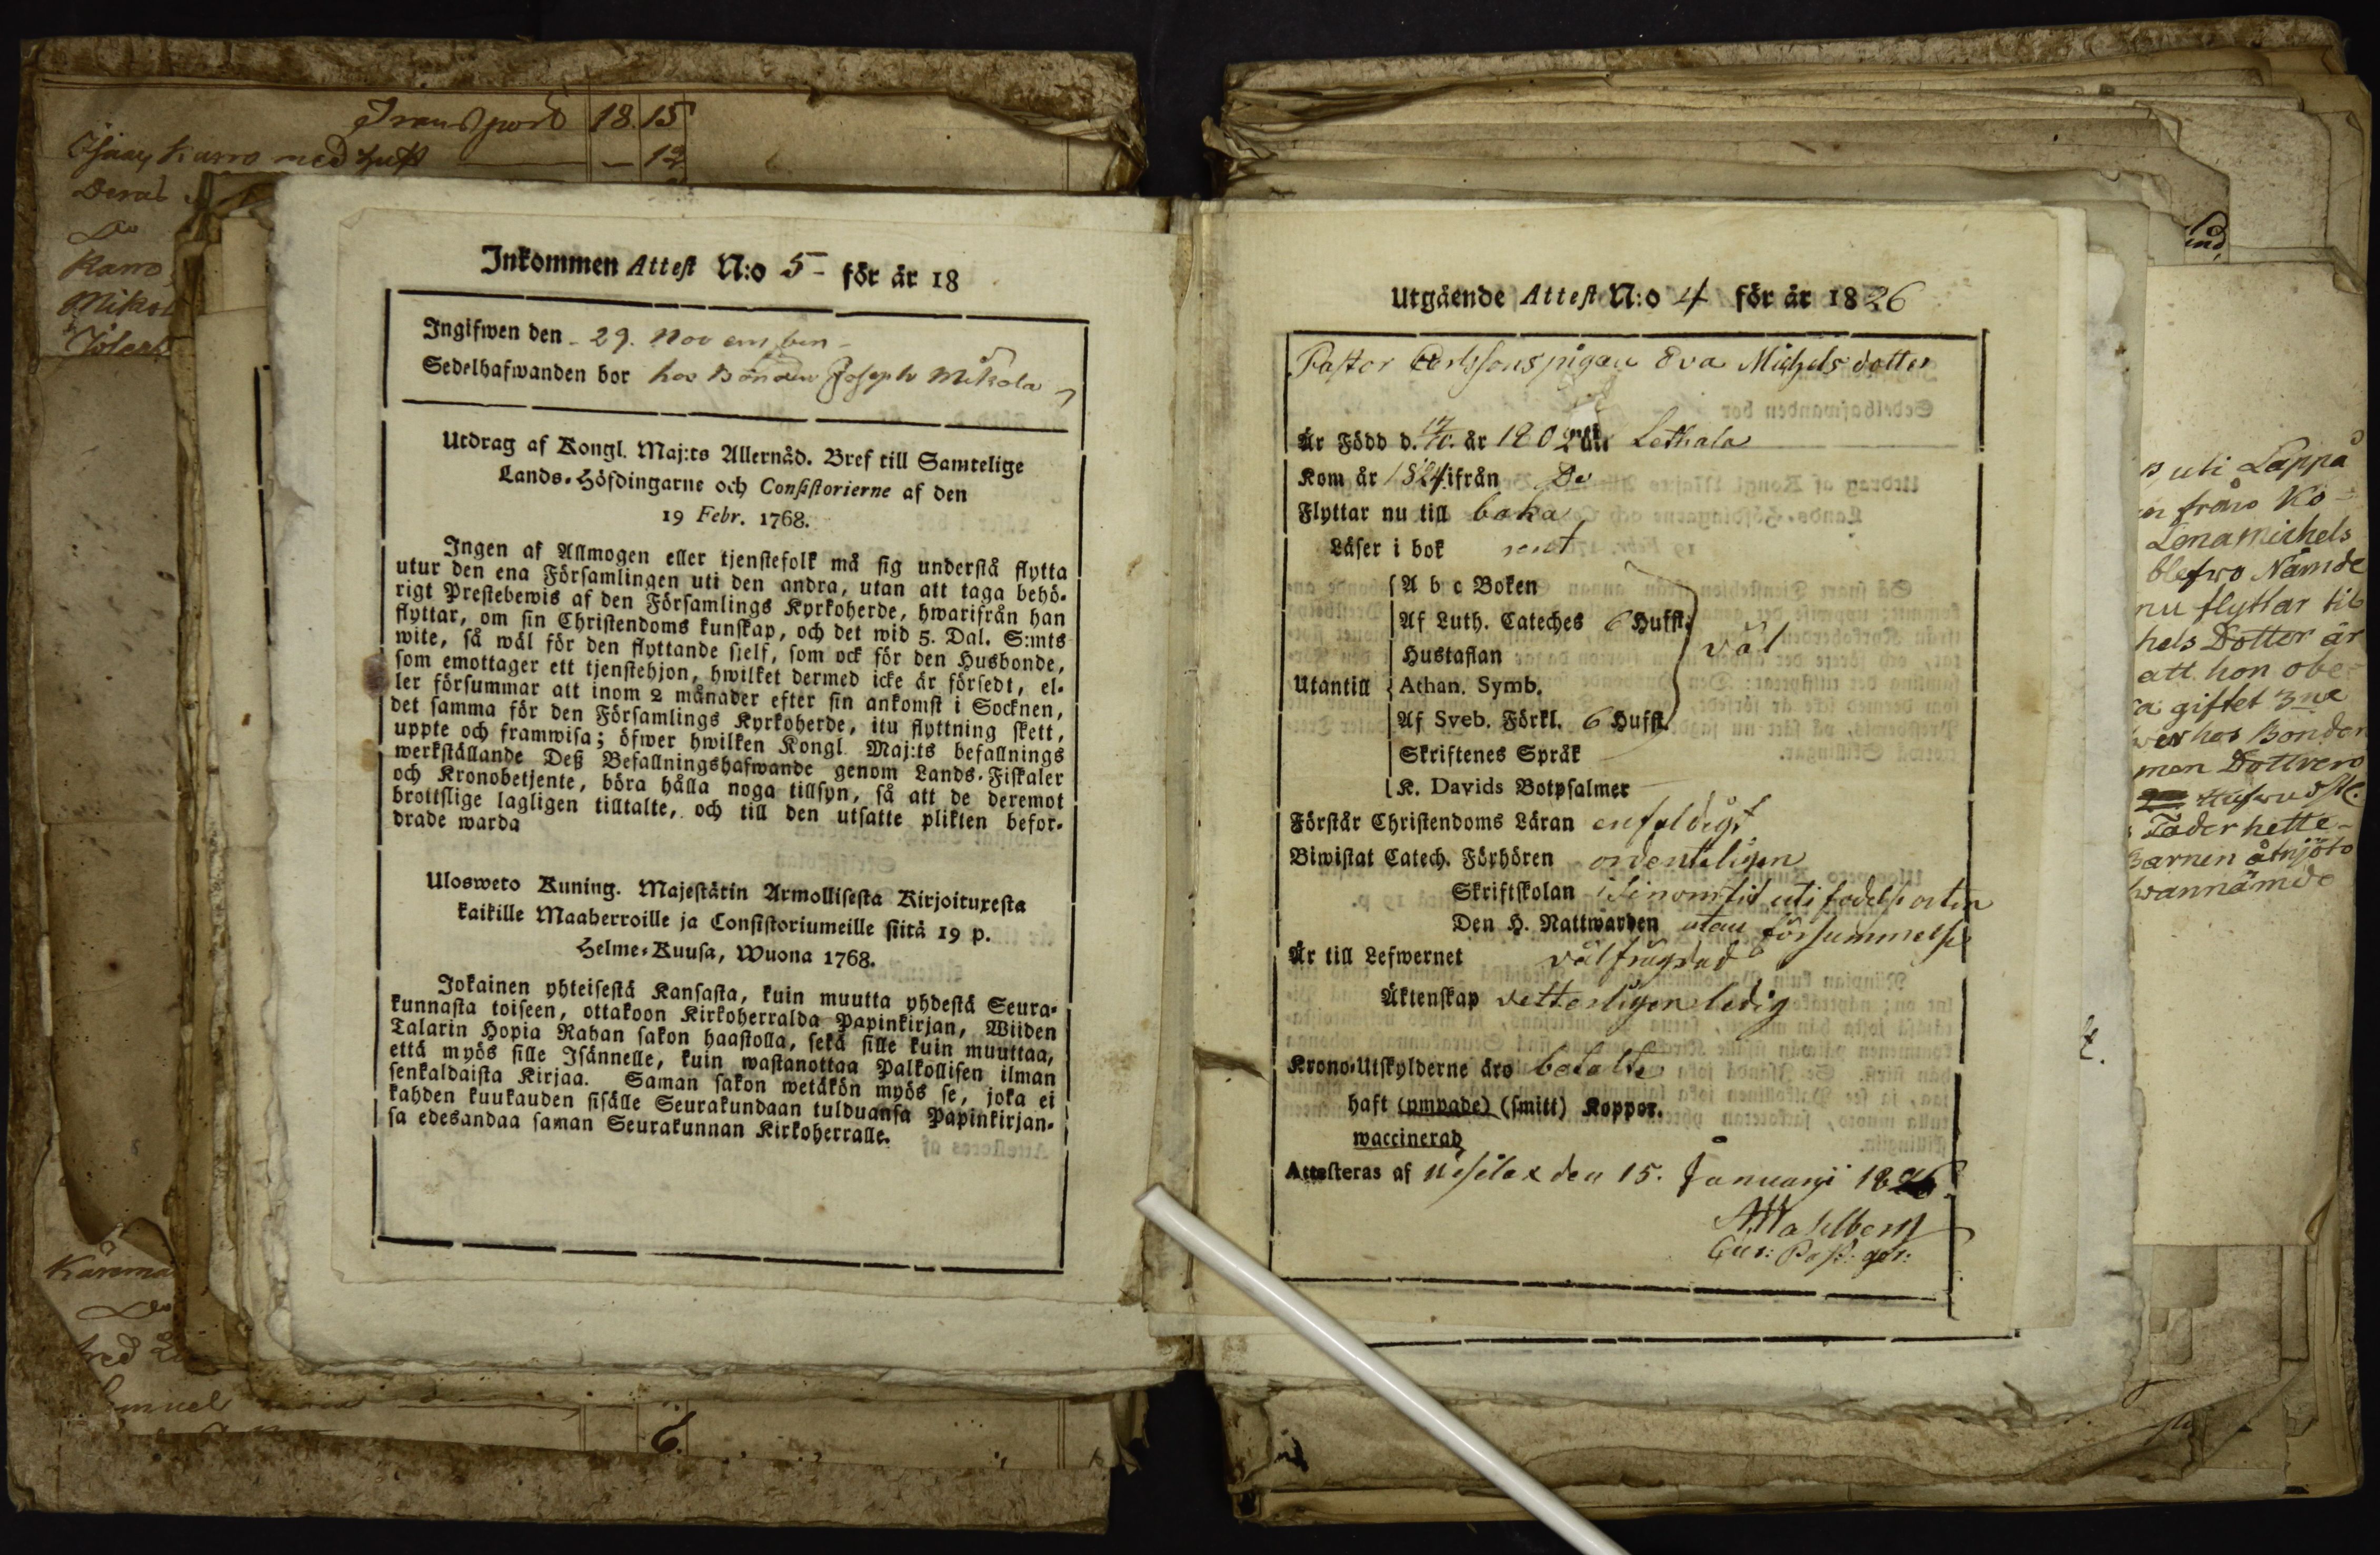 Transport 18. 15
Karro med hust — 12
Karro
Inkommen Attest N:o 5 för år 18
Ingifwen den 29. November
Sedelhafwanden bor hos Bonden Joseph Mikola
Utdrag af Kongl. Maj:ts Allernåd. Bref till Samtelige
Lands-Höfdingarne och Consistorierne af den
19 Febr. 1768.
Ingen af Allmogen eller tjenstefolk må sig understå flytta
utur den ena Församlingen uti den andra, utan att taga behö-
rigt Prestebewis af den Församlings Kyrkoherde, hwarifrån han
flyttar, om sin Christendoms kunskap, och det wid 5. Dal. S:mts
wite, så wäl för den flyttande sielf, som ock för den Husbonde,
som emottager ett tjenstehjon, hwilket dermed icke är försedt, el-
ler försummar att inom 2 månader efter sin ankomst i Socknen,
det samma för den Församlings Kyrkoherde, itu flyttning skett,
uppte och framwisa; öfwer hwilken Kongl. Maj:ts befallnings
werkställande Deß Befallningshafwande genom Lands-Fiskaler
och Kronobetjente, böra hålla noga tillsyn, så att de deremot
brottslige lagligen tilltalte, och till den utsatte plikten befor-
drade warda
Ulosweto Kuning. Majestätin Armollisesta Kirjoituxesta
kaikille Maaherroille ja Consistoriumeille siitä 19 p.
Helme-Kuusa, Wuona 1768.
Jokainen yhteisestä Kansasta, kuin muutta yhdestä Seura-
kunnasta toiseen, ottakoon Kirkoherralda Papinkirjan, Wiiden
Talarin Hopia Rahan sakon haastolla, sekä sille kuin muuttaa,
että myös sille Isännelle, kuin wastanottaa Palkollisen ilman
senkaldaista Kirjaa. Saman sakon wetäkön myös se, joka ei
kahden kuukauden sisälle Seurakundaan tulduansa Papinkirjan-
sa edesandaa saman Seurakunnan Kirkoherralle.
Utgående Attest N:o 4 för år 1826
Pastor pigan Eva Michelsdotter
Är Född d. år 1802 uti Lethala
Kom år 1824 ifrån Do
Flyttar nu till baka
Läser i bok rent
A b c Boken
Af Luth. Cateches 6 Hufst.
Hustaflan väl
Utantill Athan. Symb.
Af Sveb. Förkl. 6 Hufst.
Skriftenes Språk
K. Davids Botpsalmer
Förstår Christendoms Läran enfaldigt
Biwistat Catech. Förhören ordenteligen
Skriftskolan i sinom tid uti födelse orten
Den H. Nattwarden utan försummelse
Är till Lefwernet välfrägdad
Äktenskap vetterligen ledig
Krono-Utskylderne äro betalte
haft (ympade) (smitt) Koppor.
waccinerad
Attesteras af Wesilax den 15. Januarji 1826
uti Lappå
från Ko-
Lena Michels
blefwo Nämde
nu flyttar til
hels Dotter är
att hon obe-
giftet 3ne
hos Bonden
man Dottrero
Fader hette
Barnen åtnjöto
wannämde
6.